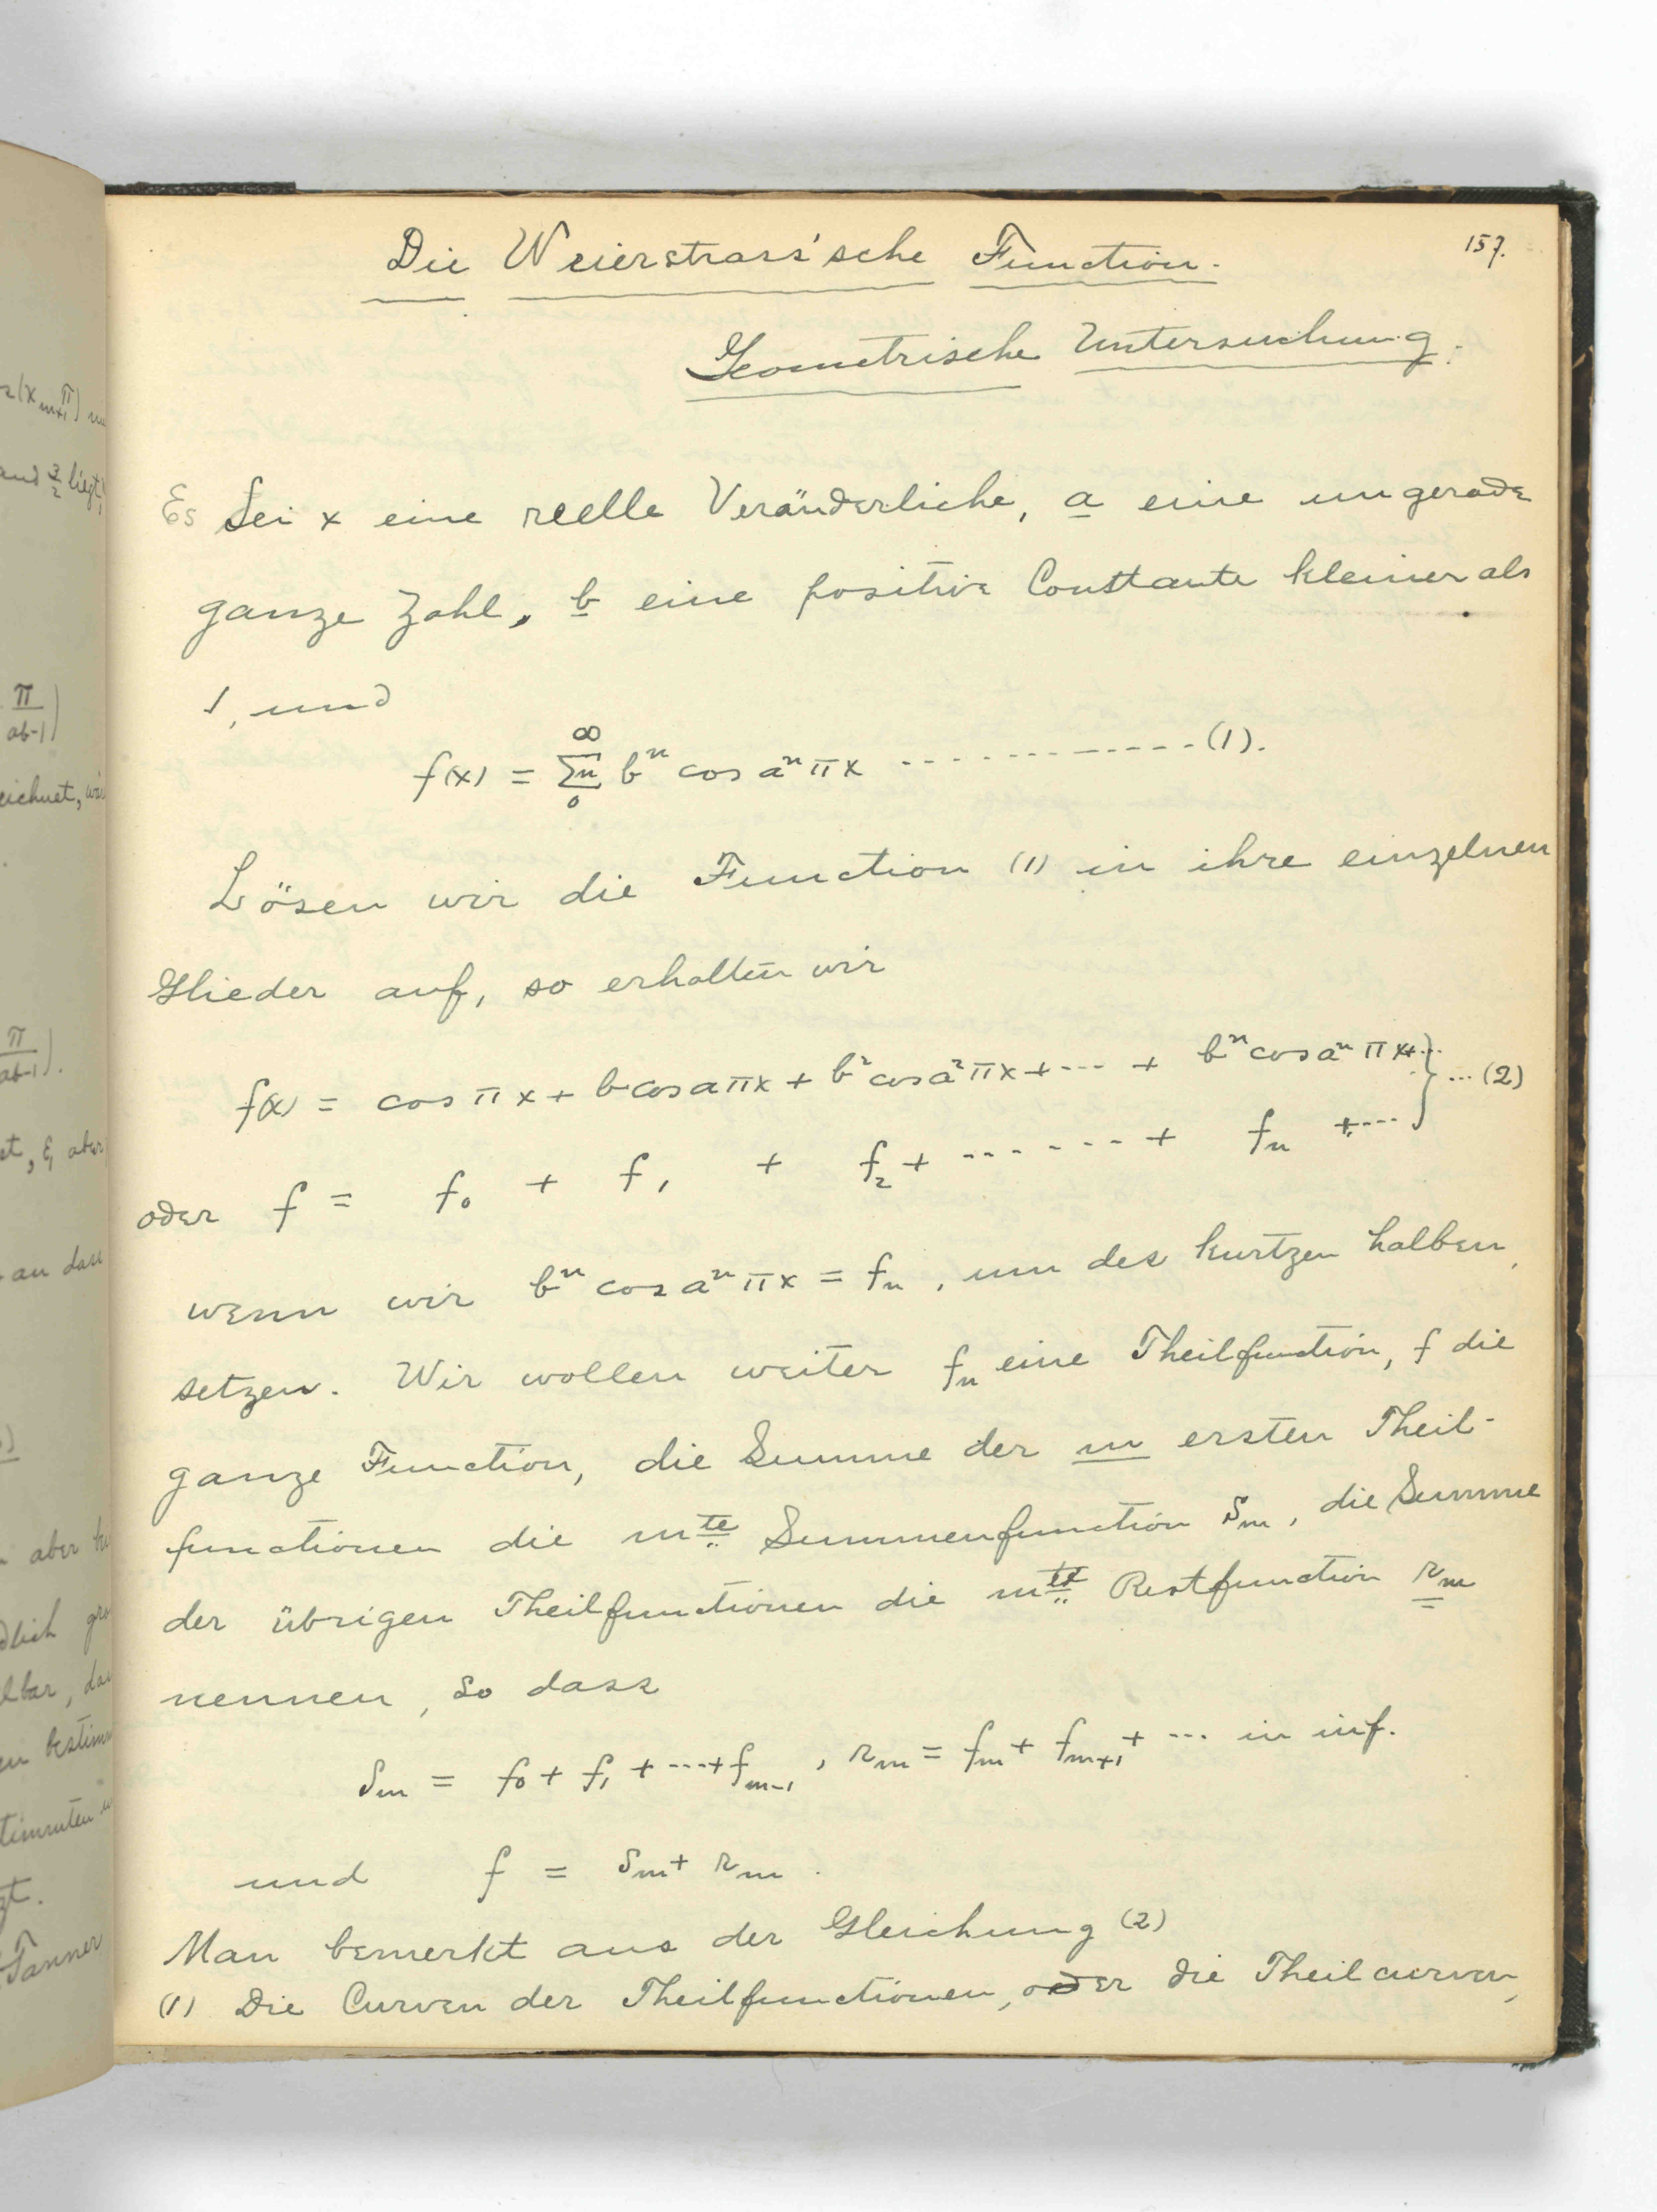 157.
Die Weierstrass'sche Function.
Geometrische Untersuchung.
Es Sei x eine reelle Veränderliche, a eine ungerade
ganze Zahl, b eine positive Constante kleiner als
1, und
f(x) = ∞ Σn 0 bⁿ cos aⁿ πx ------------- (1).
Lösen wir die Function (1) in ihre einzelnen
Glieder auf, so erhalten wir
f(x) = cos πx + b cos aπx + b² cos a²πx + --- + bⁿ cos aⁿ πx + ... } ... (2)
oder f = f₀ + f₁ + f₂ + ------- + fₙ + ----
wenn wir bⁿ cos aⁿ πx = fₙ, um des kurtzen halben,
setzen. Wir wollen weiter fₙ eine Theilfunction, f die
ganze Function, die Summe der m ersten Theil-
functionen die mte Summenfunction Sm, die Summe
der übrigen Theilfunctionen die mte Restfunction rm
nennen, so dass
Sm = f₀ + f₁ + ---- + fm-1, rm = fm + fm+1 + --- in inf.
und f = Sm + rm.
Man bemerkt aus der Gleichung (2)
(1) Die Curven der Theilfunctionen, oder die Theilcurven,
π
ab-1
π
ab-1
an das
Tanner